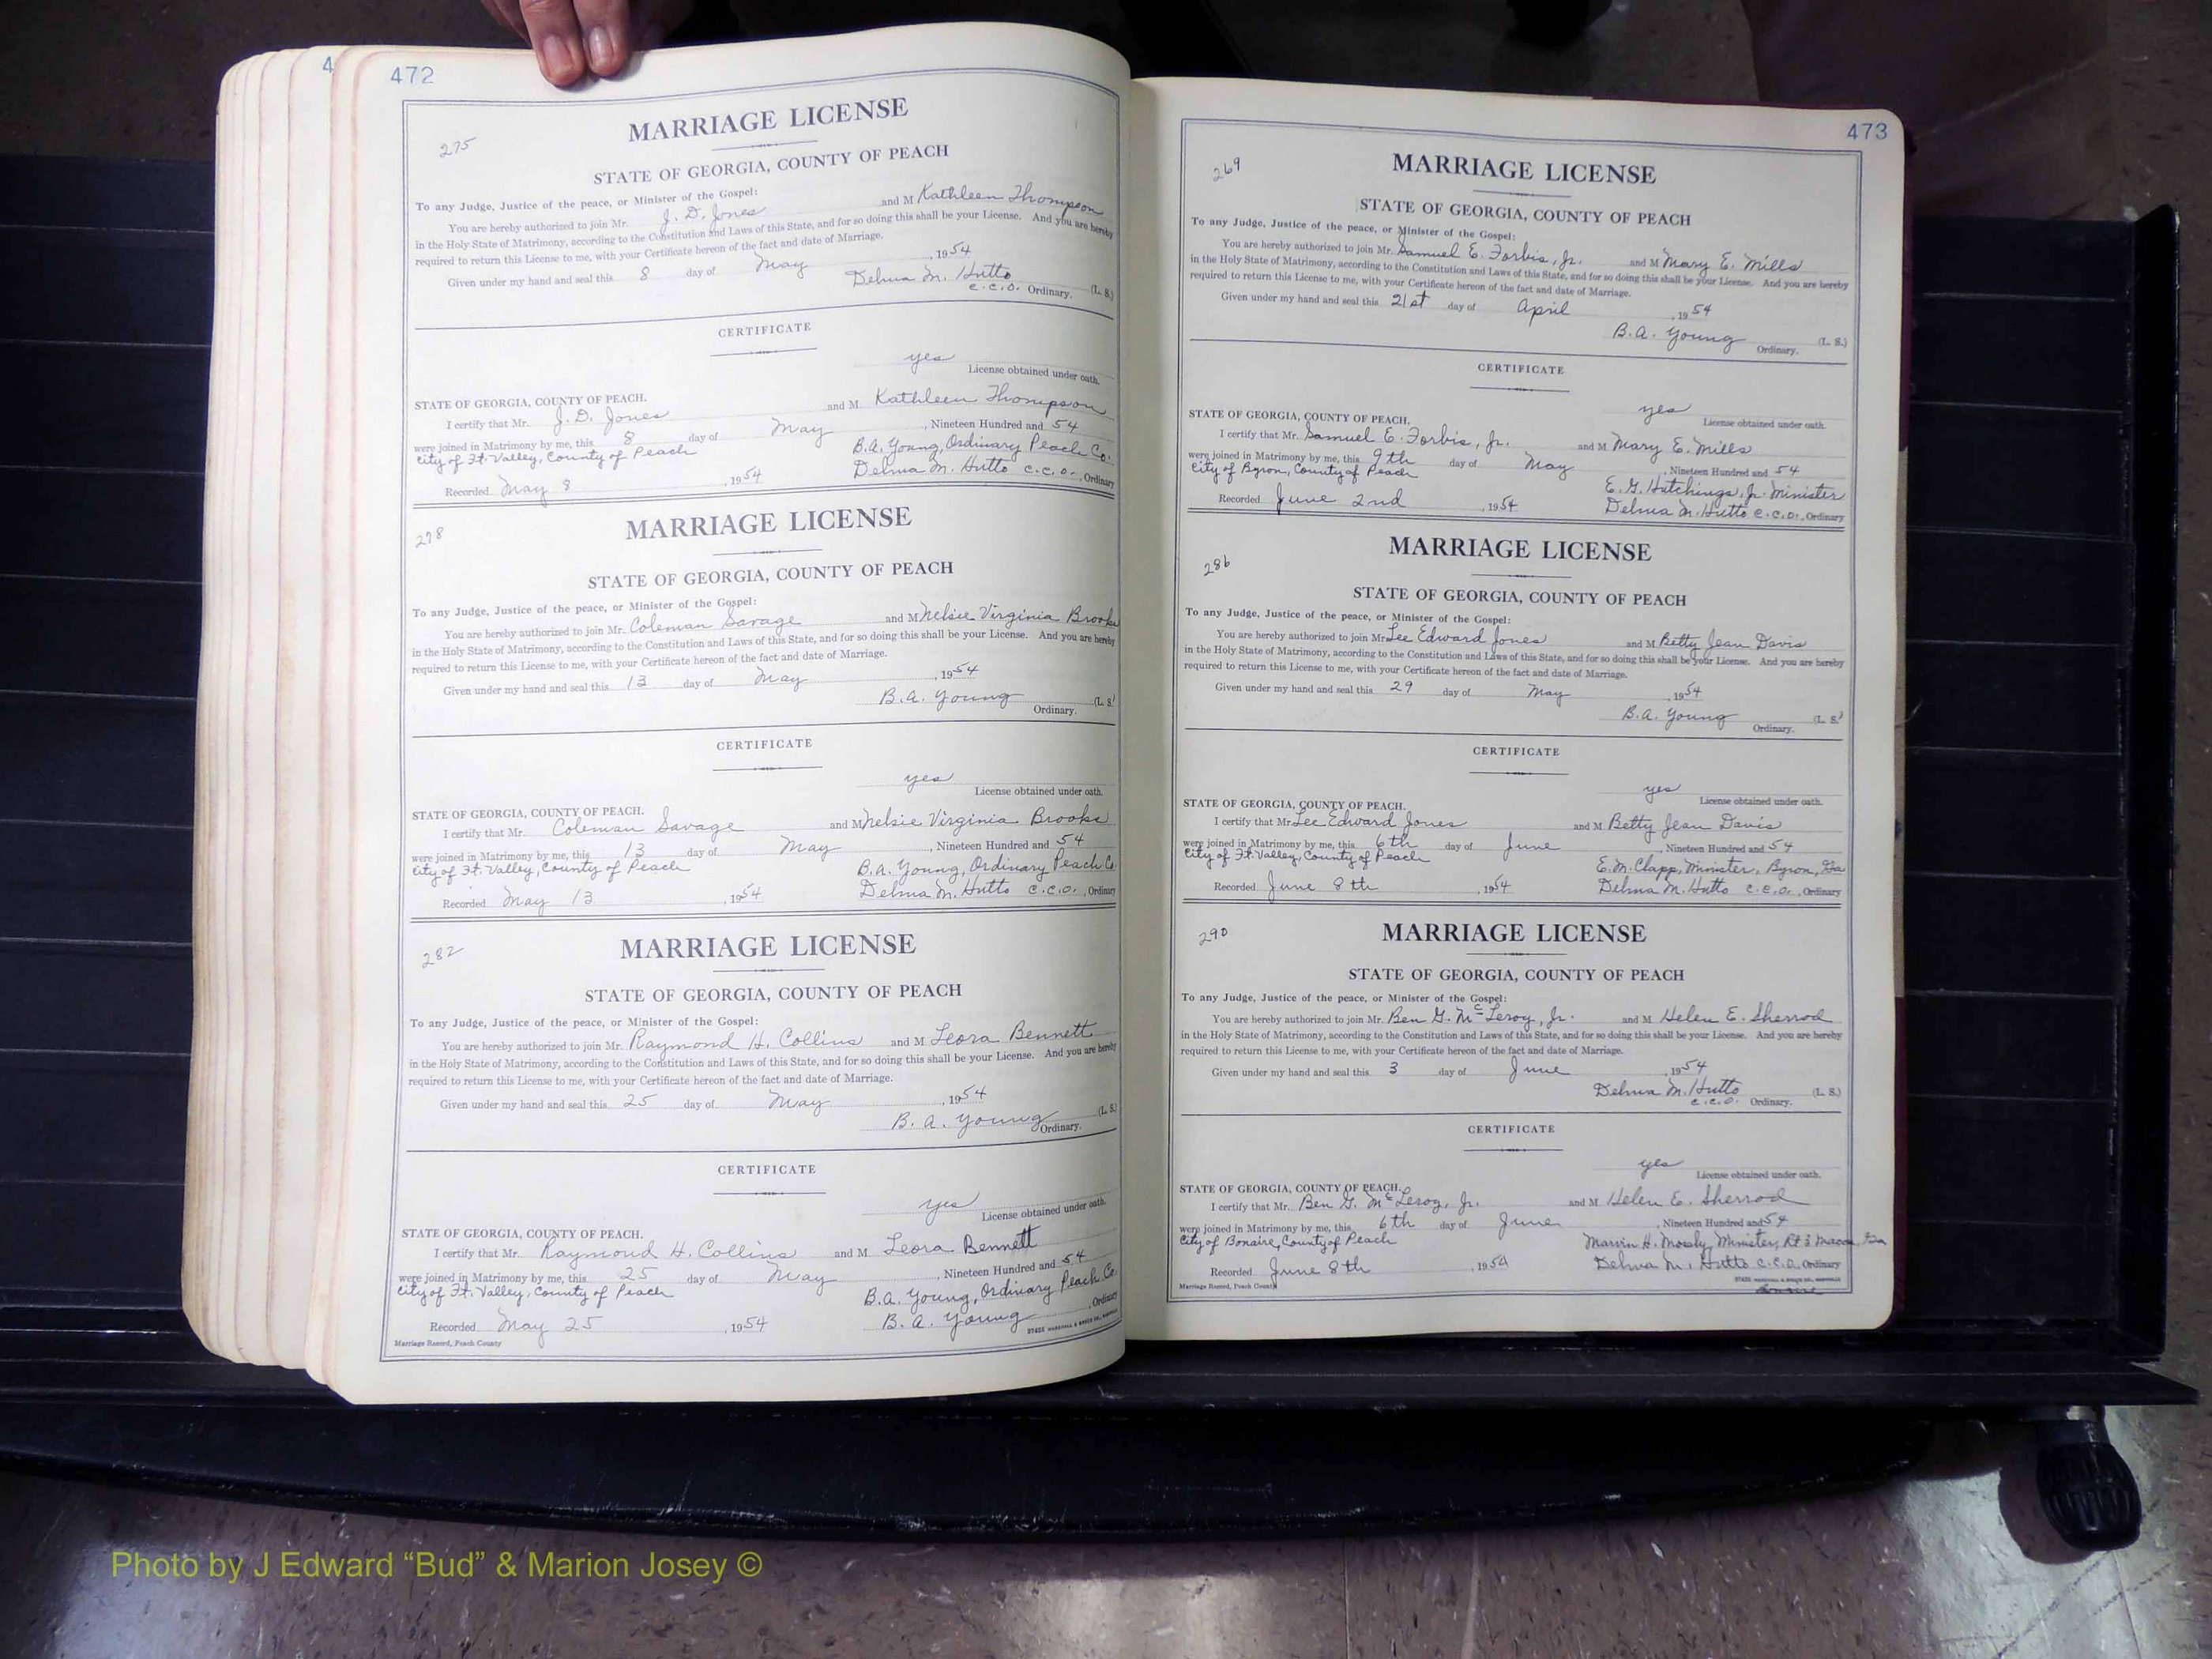 4
472
275
MARRIAGE LICENSE
STATE OF GEORGIA, COUNTY OF PEACH
To any Judge, Justice of the peace, or Minister of the Gospel:
You are hereby authorized to join Mr. J. D. Jones and M Kathleen Thompson
in the Holy State of Matrimony, according to the Constitution and Laws of this State, and for so doing this shall be your License. And you are hereby
required to return this License to me, with your Certificate hereon of the fact and date of Marriage.
Given under my hand and seal this 8 day of May, 1954
Delma M. Hutto
C.C.O. Ordinary. (L. S.)
CERTIFICATE
yes
License obtained under oath.
STATE OF GEORGIA, COUNTY OF PEACH.
I certify that Mr. J. D. Jones and M Kathleen Thompson
were joined in Matrimony by me, this 8 day of May, Nineteen Hundred and 54
City of Ft. Valley, County of Peach B.A. Young, Ordinary Peach Co.
Recorded May 8, 1954 Delma M. Hutto C.C.O., Ordinary
278
MARRIAGE LICENSE
STATE OF GEORGIA, COUNTY OF PEACH
To any Judge, Justice of the peace, or Minister of the Gospel:
You are hereby authorized to join Mr. Coleman Savage and M Virginia Brooks
in the Holy State of Matrimony, according to the Constitution and Laws of this State, and for so doing this shall be your License. And you are hereby
required to return this License to me, with your Certificate hereon of the fact and date of Marriage.
Given under my hand and seal this 13 day of May, 1954
B.A. Young (L. S.)
Ordinary.
CERTIFICATE
yes
License obtained under oath.
STATE OF GEORGIA, COUNTY OF PEACH.
I certify that Mr. Coleman Savage and M Virginia Brooks
were joined in Matrimony by me, this 13 day of May, Nineteen Hundred and 54
City of Ft. Valley, County of Peach B.A. Young, Ordinary Peach Co
Recorded May 13, 1954 Delma M. Hutto C.C.O., Ordinary
282
MARRIAGE LICENSE
STATE OF GEORGIA, COUNTY OF PEACH
To any Judge, Justice of the peace, or Minister of the Gospel:
You are hereby authorized to join Mr. Raymond H. Collins and M Leora Bennett
in the Holy State of Matrimony, according to the Constitution and Laws of this State, and for so doing this shall be your License. And you are hereby
required to return this License to me, with your Certificate hereon of the fact and date of Marriage.
Given under my hand and seal this 25 day of May, 1954
B. A. Young (L. S.)
Ordinary.
CERTIFICATE
yes
License obtained under oath.
STATE OF GEORGIA, COUNTY OF PEACH.
I certify that Mr. Raymond H. Collins and M Leora Bennett
were joined in Matrimony by me, this 25 day of May, Nineteen Hundred and 54
City of Ft. Valley, County of Peach B.A. Young, Ordinary Peach Co.
Recorded May 25, 1954 B. A. Young, Ordinary
Marriage Record, Peach County
473
269
MARRIAGE LICENSE
STATE OF GEORGIA, COUNTY OF PEACH
To any Judge, Justice of the peace, or Minister of the Gospel:
You are hereby authorized to join Mr. Samuel E. Forbis, Jr. and M Mary E. Mills
in the Holy State of Matrimony, according to the Constitution and Laws of this State, and for so doing this shall be your License. And you are hereby
required to return this License to me, with your Certificate hereon of the fact and date of Marriage.
Given under my hand and seal this 21st day of April, 1954
B.A. Young (L. S.)
Ordinary.
CERTIFICATE
yes
License obtained under oath.
STATE OF GEORGIA, COUNTY OF PEACH.
I certify that Mr. Samuel E. Forbis, Jr. and M Mary E. Mills
were joined in Matrimony by me, this 9th day of May, Nineteen Hundred and 54
City of Byron, County of Peach E. G. Hutchings, Jr. Minister
Recorded June 2nd, 1954 Delma M. Hutto C.C.O., Ordinary
286
MARRIAGE LICENSE
STATE OF GEORGIA, COUNTY OF PEACH
To any Judge, Justice of the peace, or Minister of the Gospel:
You are hereby authorized to join Mr. Lee Edward Jones and M Betty Jean Davis
in the Holy State of Matrimony, according to the Constitution and Laws of this State, and for so doing this shall be your License. And you are hereby
required to return this License to me, with your Certificate hereon of the fact and date of Marriage.
Given under my hand and seal this 29 day of May, 1954
B.A. Young (L. S.)
Ordinary.
CERTIFICATE
yes
License obtained under oath.
STATE OF GEORGIA, COUNTY OF PEACH.
I certify that Mr. Lee Edward Jones and M Betty Jean Davis
were joined in Matrimony by me, this 6th day of June, Nineteen Hundred and 54
City of Ft. Valley, County of Peach E. M. Clapp, Minister, Byron, Ga
Recorded June 8th, 1954 Delma M. Hutto C.C.O., Ordinary
290
MARRIAGE LICENSE
STATE OF GEORGIA, COUNTY OF PEACH
To any Judge, Justice of the peace, or Minister of the Gospel:
You are hereby authorized to join Mr. Ben G. McLeroy, Jr. and M Helen E. Sherrod
in the Holy State of Matrimony, according to the Constitution and Laws of this State, and for so doing this shall be your License. And you are hereby
required to return this License to me, with your Certificate hereon of the fact and date of Marriage.
Given under my hand and seal this 3 day of June, 1954
Delma M. Hutto (L. S.)
C.C.O. Ordinary.
CERTIFICATE
yes
License obtained under oath.
STATE OF GEORGIA, COUNTY OF PEACH.
I certify that Mr. Ben G. McLeroy, Jr. and M Helen E. Sherrod
were joined in Matrimony by me, this 6th day of June, Nineteen Hundred and 54
City of Bonaire, County of Peach Marvin H. Mosely, Minister, Rt 3 Macon, Ga
Recorded June 8th, 1954 Delma M. Hutto C.C.O. Ordinary
Marriage Record, Peach County
Photo by J Edward “Bud” & Marion Josey ©